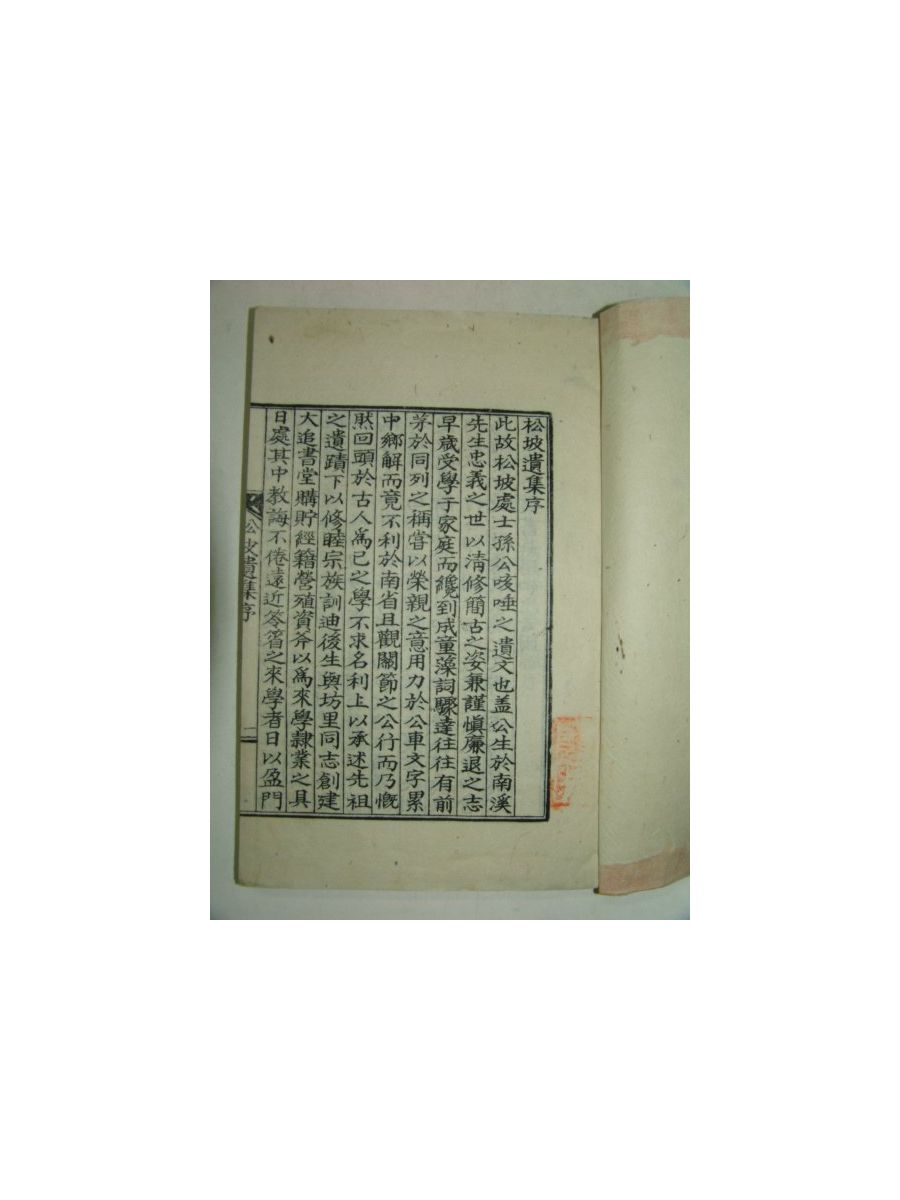 松坡遺集序
此故松坡處士孫公咳唾之遺文也盖公生於南溪
先生忠義之世以清修簡古之姿兼謹愼廉退之志
早歲受學于家庭而纔到成童藻詞驟達往往有前
茅於同列之稱嘗以榮親之意用力於公車文字累
中鄉解而竟不利於南省且觀關節之公行而乃慨
然回頭於古人爲己之學不求名利上以承述先祖
之遺蹟下以修睦宗族訓迪後生與坊里同志創建
大追書堂購貯經籍營殖資斧以爲來學隷業之具
日處其中教誨不倦遠近笭箵之來學者日以盈門
松坡遺集序